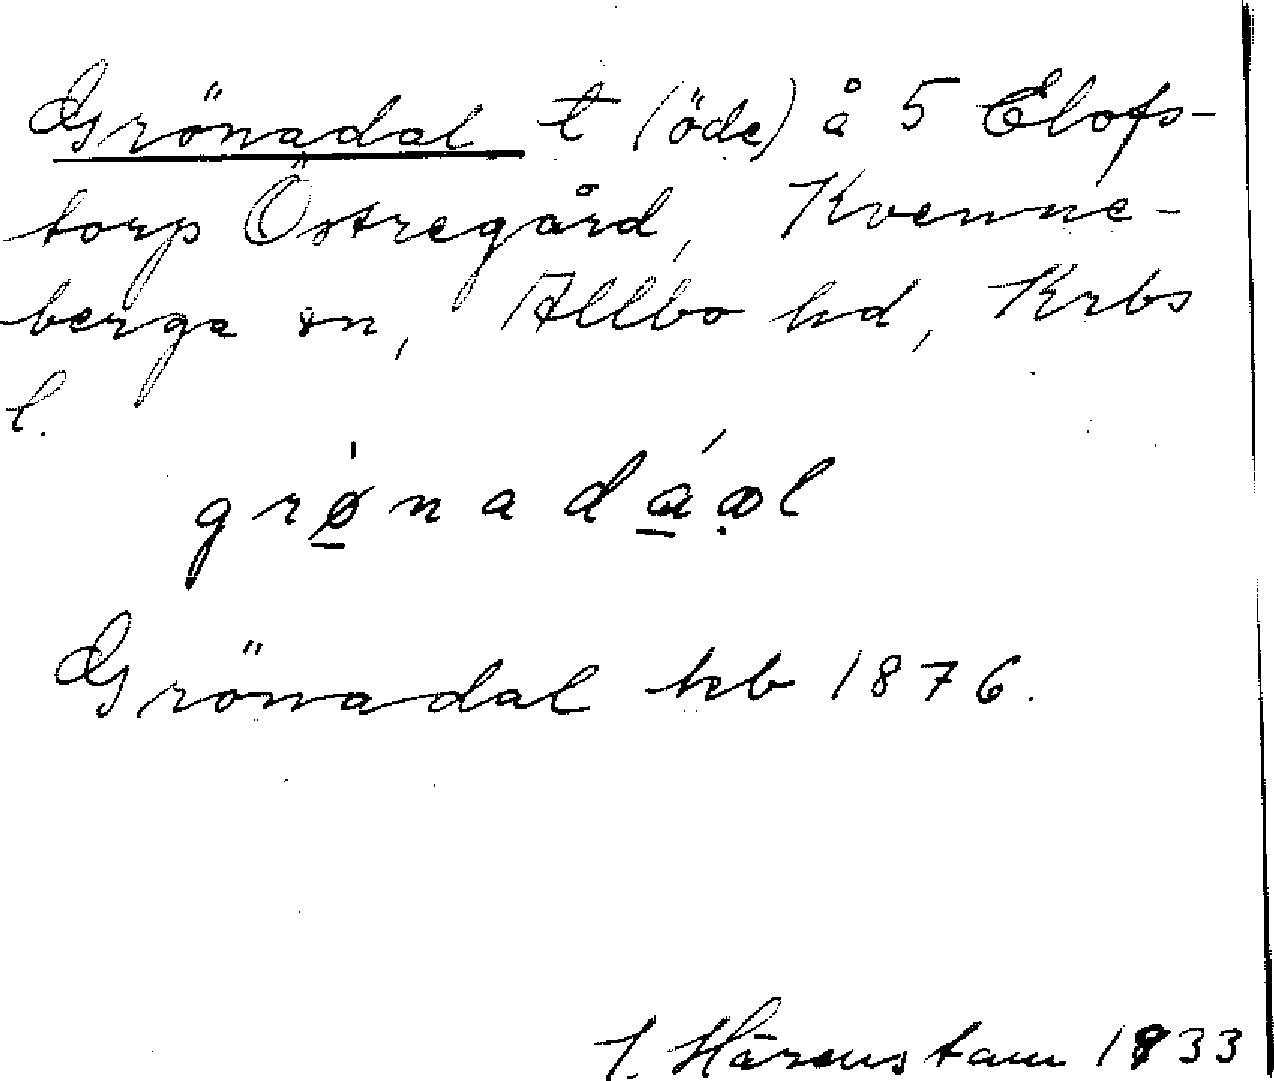 Grönadal t (öde) å 5 Elofs-
torp Östregård, Kvenne-
berga sn, Allbo hd, Krbs
l.
grǿ̱nadá̱ạl
Grönadal hb 1876.
J. Härenstam 1933